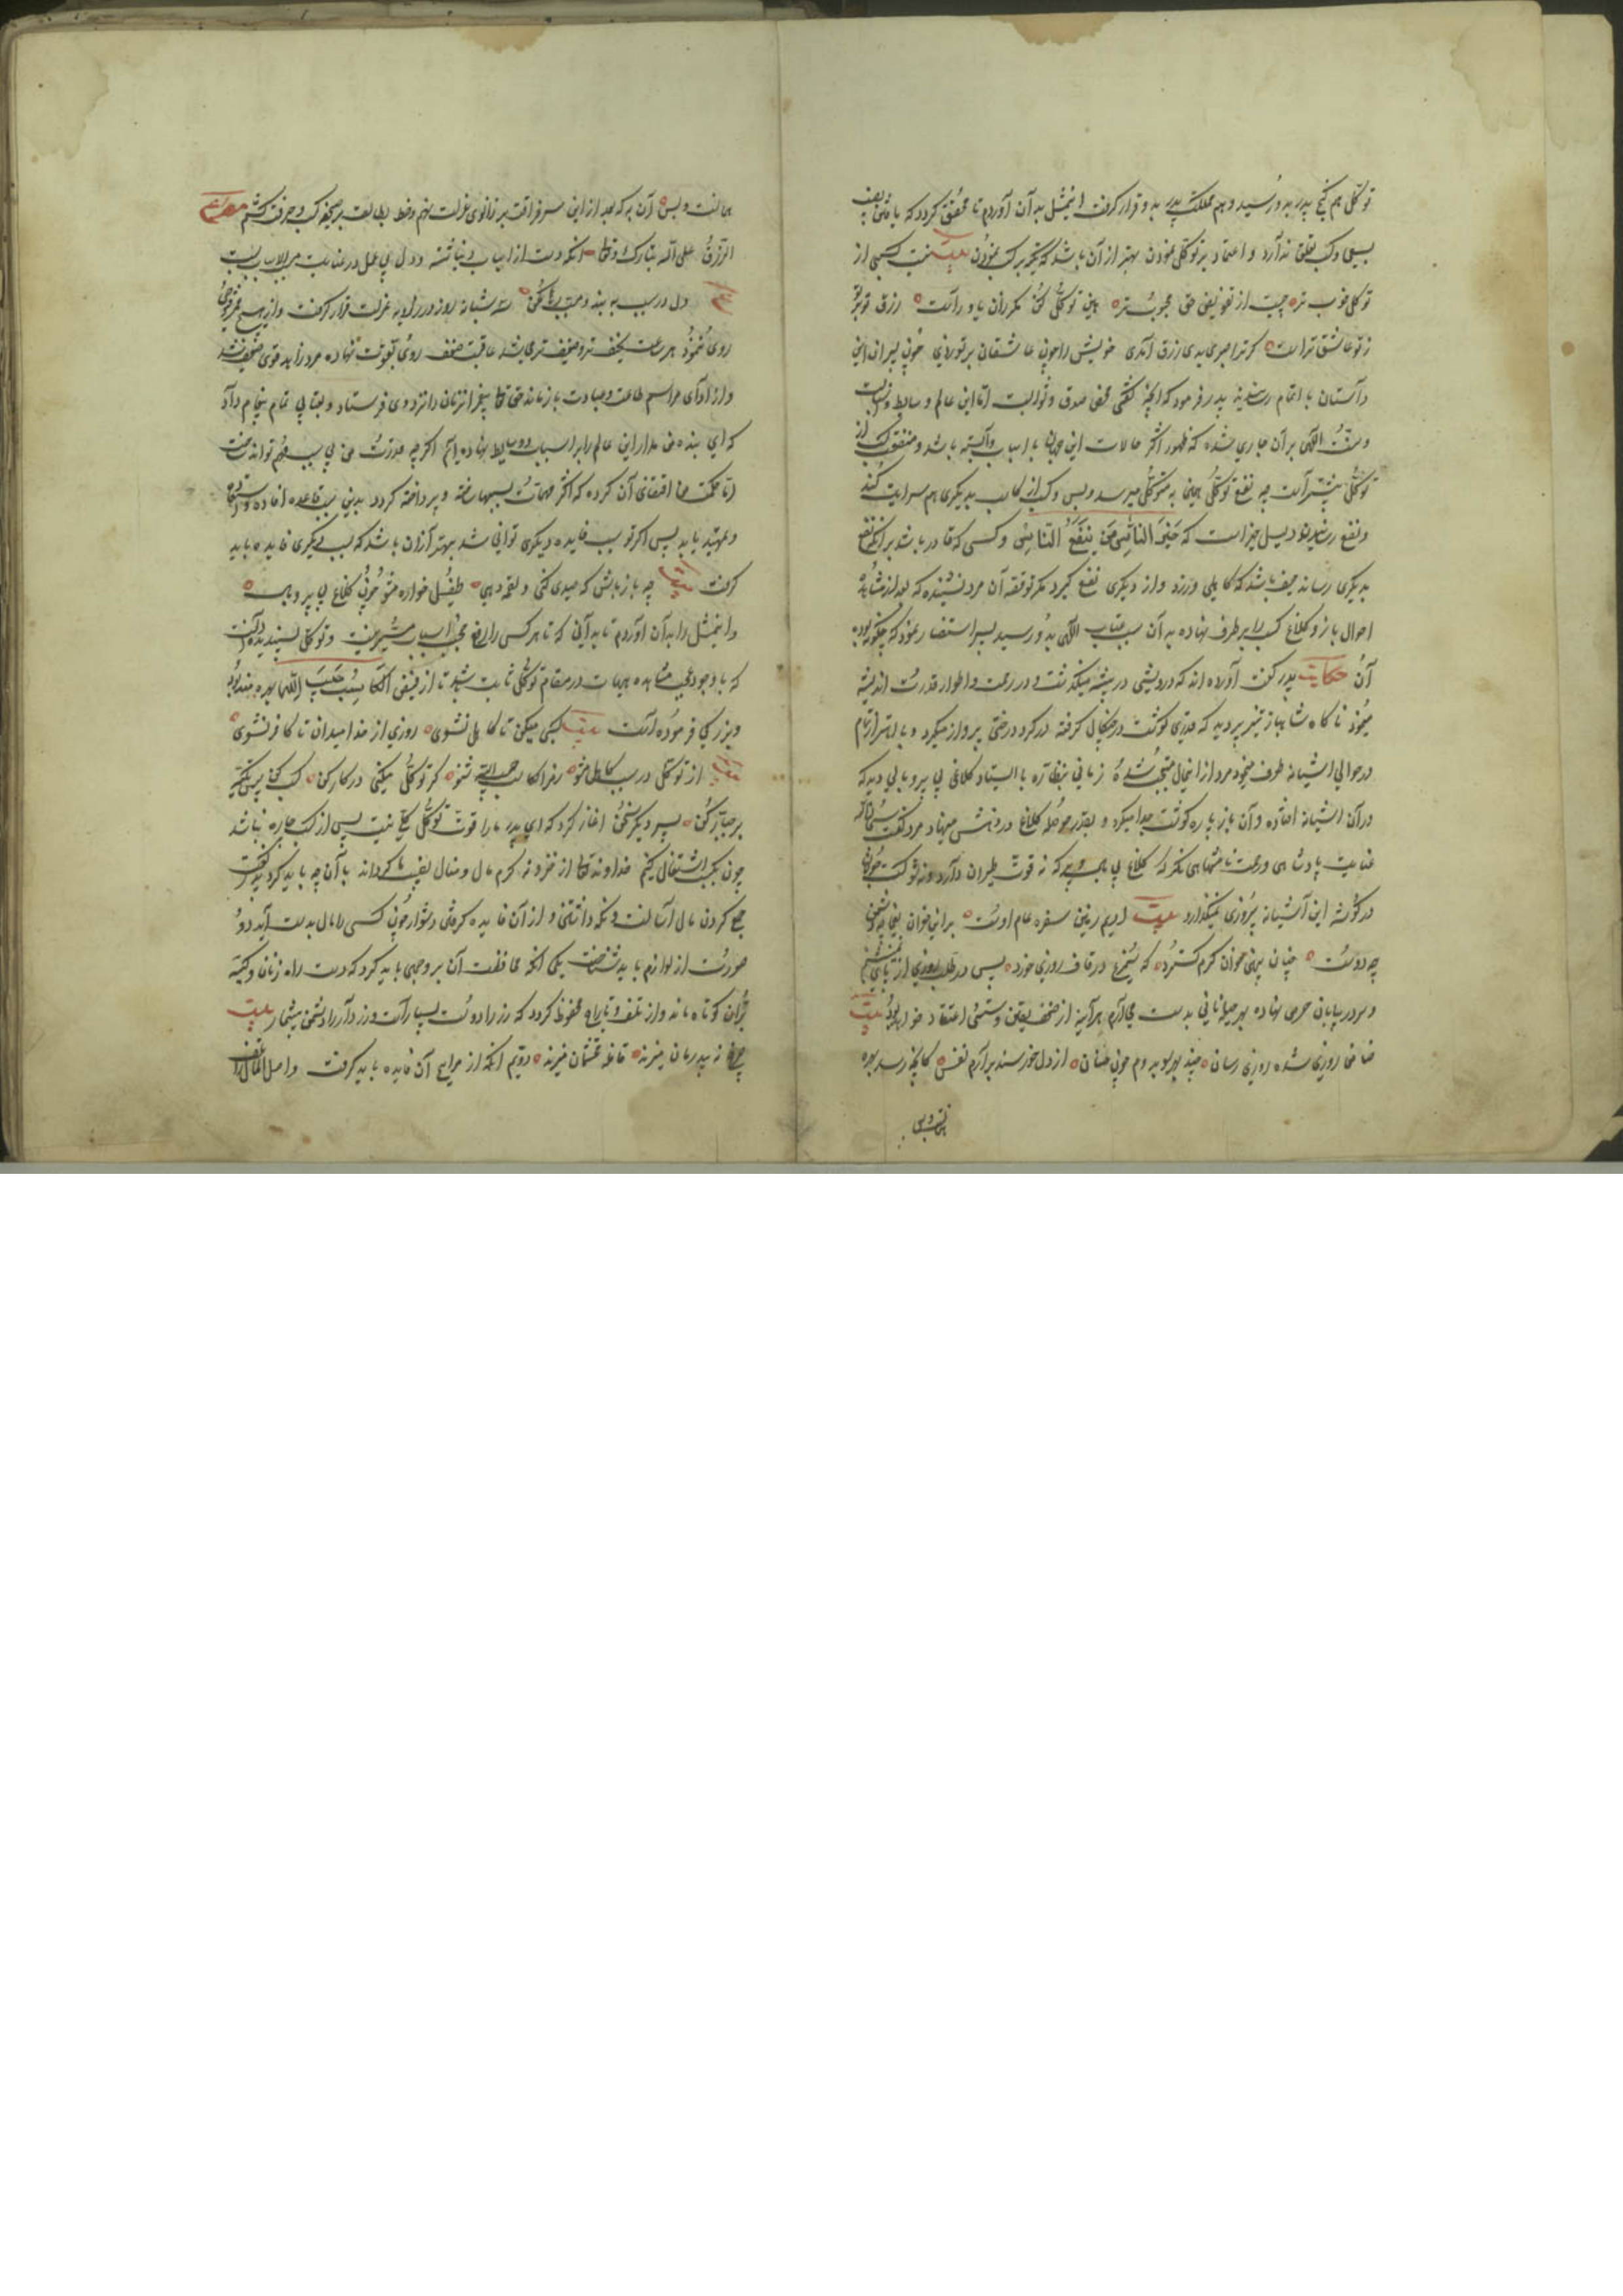 توکل هم گنج پدر بدو رسید و هم مملکت پدر بدو قرار گرفت این مثل به آن آوردم تا محقق گردد که یافتن نصیب
بسعی و کسب تعلق ندارد و اعتماد بر توکل نمودن بهتر از آن باشد که تکیه بر کسب نمودن بیت نیست کسبی از
توکل خوب تر چیست از تفویض حق محبوب تر هین توکل کن ملرزان پا و دست رزق تو بر تو
ز تو عاشق تر است گر ترا صبری بدی رزق آمدی خویش را چون عاشقان بر تو زدی چون پسران این
داستان با اتمام رسانید پدر فرمود که آنچه گفتی محض صدق و ثوابست اما این عالم وسایط و اسبابست
و سنت الهی بر آن جاری شده که ظهور اکثر حالات این جهان با اسباب وابسته باشد و منفعت کسب از
توکل بیشتر است چه نفع توکل همین به متوکل میرسد و بس و کسب از کاسب بدیگری هم سرایت کند
و نفع رسانیدن دلیل خیر است که خیر الناس من ینفع الناس و کسی که قادر باشد بر آنکه نفع
بدیگری رساند حیف باشد که کاهلی ورزد و از دیگری نفع گیرد مگر تو قصه آن مرد نشنیده که بعد از مشاهده
احوال باز و کلاغ کسب را بر طرف نهاده به آن سبب عتاب الهی بدو رسید پسر استفسار نمود که چگونه بود
آن حکایت پدر گفت آورده اند که درویشی در بیشه میگذشت و در رحمت و اطوار قدرت اندیشه
مینمود ناگاه شاهباز تیزپر دید که قدری گوشت در چنگال گرفته در گرد درختی پرواز میکرد و با اهتزاز تمام
در حوالی آشیانه طوف مینمود مرد از این حال متعجب شده زمانی بنظاره با ایستاد کلاغی بی پر و بالی دید که
در آن آشیانه افتاده و آن باز پاره پاره گوشت جدا میکرد و بقدر حوصله کلاغ در دهنش مینهاد مرد گفت سبحان الله
عنایت پادشاهی و رحمت نامتناهی نگر که کلاغ بی بال و پر که نه قوت طیران دارد و نه شوکت جولان
در گوشه این آشیانه بی روزی نمیگذارد بیت ادیم زمین سفره عام اوست بر این خوان یغما چه دشمن
چه دوست چنان پهن خوان کرم گسترد که سیمرغ در قاف روزی خورد پس در طلب روزی از پای نمی نشینم
و سر در بیابان حرص نهاده بهر حیله نانی بدست می آرم هر آینه از ضعف یقین و سستی اعتقاد خواهد بود بیت
ضامن روزی شده روزی رسان چند بهر سو بدوم چون خسان از دل خورسند برآرم نفس کانچه رسد بهره
همانست و بس آن به که بعد از این سر فراغت بر زانوی عزلت نهم و خط بطالت بر صحیفه کسب و حرفت کشم مصرع
الرزق علی الله تبارک و تعالی انگه دست از اسباب دنیا شسته و دل بی غل در عنایت مسبب الاسباب بست
مصرع دل در سبب مبند و مسبب رها مکن سه شبانه روز در زاویه عزلت قرار گرفت و از هیچ ممر فتوحی
روی ننمود هر ساعت نحیف تر و ضعیف تر می شد عاقبت ضعف روی بقوت نهاده مرد زاهد قوی ضعیف شد
و از ادای مراسم طاعت و عبادت باز ماند حق تعالی پیغمبر آن زمان را نزد وی فرستاد و بعتابی تمام پیغام داد
که ای بنده من مدار این عالم را بر اسباب و وسایط نهاده ایم اگر چه قدرت من بی سبب مهم تواند ساخت
اما حکمت ما اقتضای آن کرده که اکثر مهمات بسببها ساخته و پرداخته گردد بدین سبب قاعده افاده و استفاده
و تمهید یابد پس اگر تو سبب فایده دیگری توانی شد بهتر از آن باشد که بسبب دیگری فایده باید
گرفت بیت چو باز باش که صیدی کنی و لقمه دهی طفیل خواره مشو چون کلاغ بی پر و بال
و این مثل را به آن آوردم تا بدانی که تا هر کسی را رفع حجب اسباب میسر نیست و توکل پسندیده آنست
که با وجود مشاهده اسباب در مقام توکل ثابت شد تا از فیض الکاسب حبیب الله بهره مند بود
و بزرگی فرموده است بیت کسبی میکن تا کاهل نشوی روزی از خدا میدان تا کافر نشوی
بیت از توکل در سبب کاهل مشو رمز الکاسب حبیب الله شنو گر توکل میکنی در کار کن کسب کن پس تکیه
بر جبار کن پسر دیگر سخن آغاز کرد که ای پدر ما را قوت توکل کلی نیست پس از کسب چاره نباشد
چون بکسب اشتغال کنیم خداوند تعالی از خزانه کرم مال و منال نصیب ما گرداند با آن چه باید کرد پدر گفت
جمع کردن مال آسانست و نگه داشتن و از آن فایده گرفتن دشوار چون کسی را مال بدست آید دو
صورت از لوازم باید شناخت یکی آنکه محافظت آن بر وجهی باید کرد که دست راه زنان و کیسه
بران کوتاه ماند و از تلف و تاراج محفوظ گردد که زر را دوست بسیار است و زردار را دشمن بیشمار بیت
چرخ نه بر بیدرمان میزند قافله محتشمان میزند دویم آنکه از مرابح آن فایده باید گرفت و اصل المال را تلف